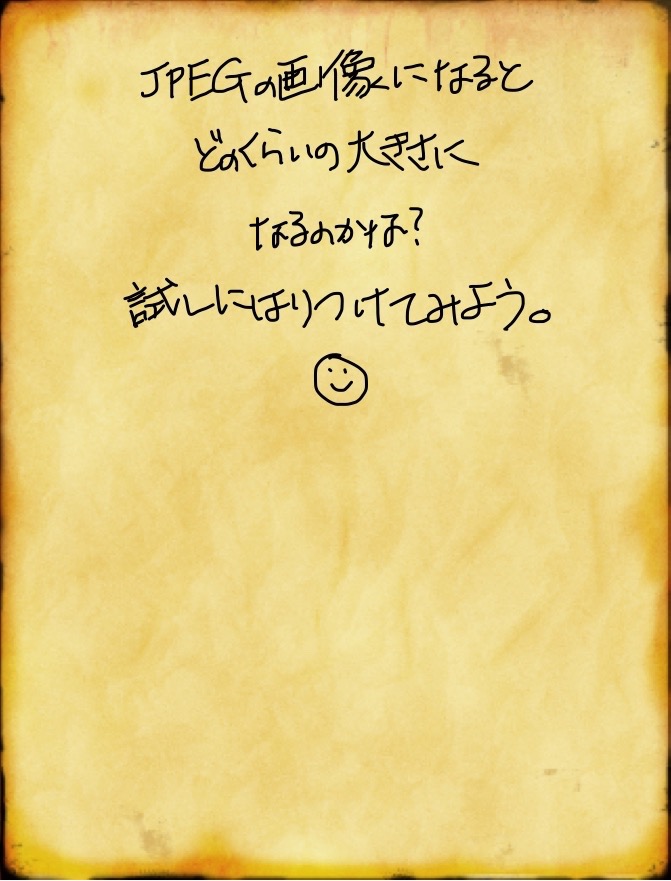 JPEGの画像になると
どのくらいの大きさに
なるのかな?
試しにはりつけてみよう。